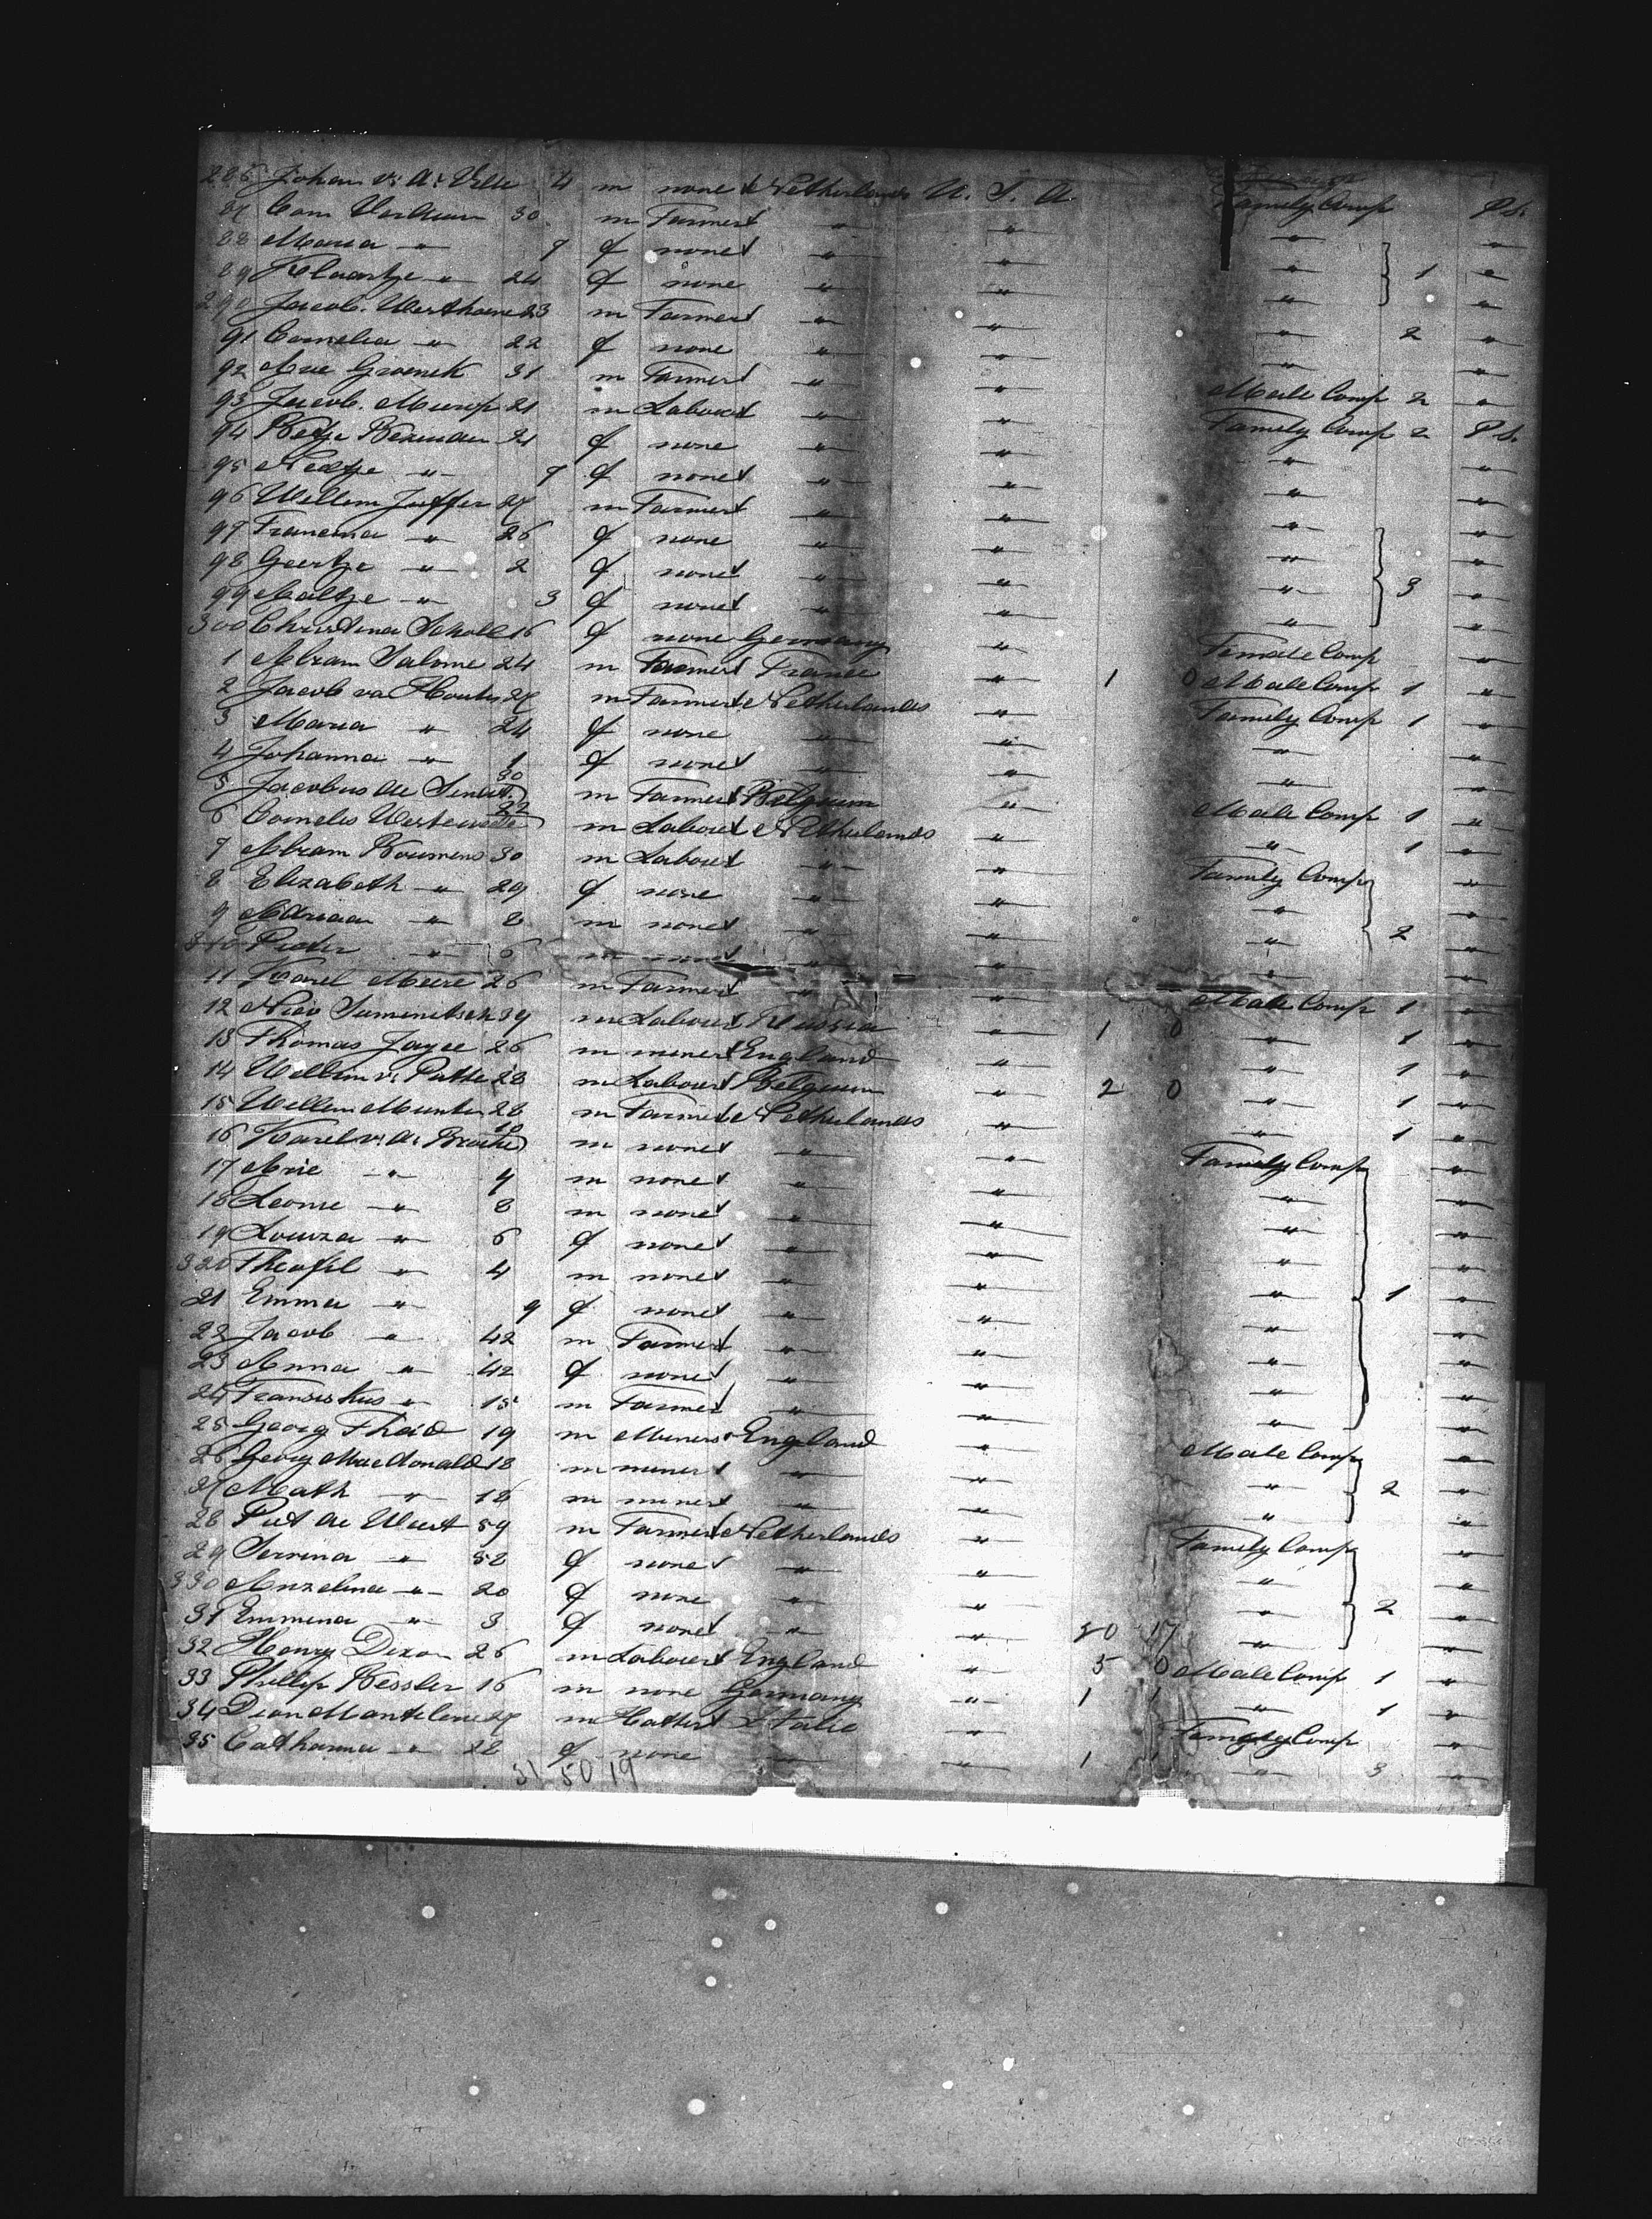 286 Johan v. d. Velde 4 m none Netherlands U. S. A. Family Comp P.d.
87 Corn 30 m Farmer " " " "
88 Maria " 7 f none " " " 1 "
89 Klaartje " 24 f none " " " "
290 Jacob. Westhoeve 23 m Farmer " " " 2 "
91 Cornelia " 22 f none " " " "
92 Arie 31 m Farmer " " Male Comp 2 "
93 Jacob. 21 m Labour " " Family Comp 2 P.d.
94 Betje 21 f none " " " "
95 Neeltje " 7 f none " " " "
96 Willem Juffer 27 m Farmer " " " "
97 Francina " 26 f none " " " "
98 Geertje " 2 f none " " " 3 "
99 Aaltje " 3 f none " " " "
300 Christina Scholl 16 f none Germany " Female Comp "
1 Abram Salome 24 m Farmer France " 1 0 Male Comp 1 "
2 Jacob va Houte 27 m Farmer Netherlands " Family Comp 1 "
3 Maria " 24 f none " " " 
4 Johanna " 1 f none " " "
5 Jacobus de 30 m Farmer Belgium " Male Comp 1 "
6 Cornelis 22 m Labour Netherlands " " 1 "
7 Abram Boumens 30 m Labour " " Family Comp "
8 Elizabeth " 29 f none " " " "
9 Adriaan " 8 m none " " " 2 "
310 Pieter " 6 m none " " "
11 Karel Meere 26 m Farmer " " Male Comp 1 "
12 39 m Labour Russia " 1 0 " 1 "
13 Thomas Jayce 26 m miner England " " 1 "
14 Willem v. Putte 28 m Labour Belgium " 2 0 " 1 "
15 Willem Munter 28 m Farmer Netherlands " " 1 "
16 Karel v. d. Broeke 10 m none " " Family Comp "
17 Arie " 9 m none " " " "
18 Leonie " 8 m none " " " "
19 Louiza " 6 f none " " " "
320 Theofil " 4 m none " " " 1 "
21 Emma " 9 f none " " " "
22 Jacob " 42 m Farmer " " " "
23 Anna " 42 f none " " " "
24 Fransiskus " 15 m Farmer " " " "
25 Georg 19 m Miner England " Male Comp "
26 Georg MacDonald 18 m miner " " " 2 "
27 Math " 18 m miner " " " "
28 Piet de Weert 59 m Farmer Netherlands " Family Comp "
29 Serrina " 52 f none " " " "
330 Anzelina " 20 f none " " " 2 "
31 Emmena " 3 f none " " 50 17 " "
32 Henry Dixon 26 m Labour England " 5 0 Male Comp 1 "
33 Phillip Kessler 16 m none Germany " 1 1 " 1 "
34 27 m Hatter Italie " Family Comp "
35 Catharina " 22 f none " " 1 1 " 3 "
51 50 19